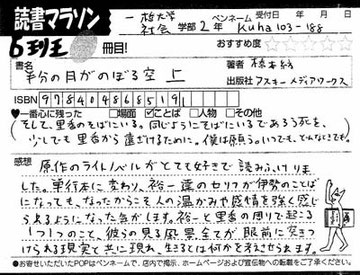 読書マラソン
一橋大学
社会 学部 2年
ペンネーム Kuha103-188
受付日 年 月 日
冊目!
おすすめ度 ☆☆☆☆☆
書名
半分の月がのぼる空 上
著者 橋本紡
出版社 アスキー・メディアワークス
ISBN 9784048685191
♥一番心に残った □場面 ☑ことば □人物 □その他
そして、里香のそばにいる。同じようにそばにいてある死を、
少しでも里香から遠ざけるために。僕は祈ろう。いつでも、どんなときでも。
感想
原作のライトノベルがとても好きで読みふけりま
した。単行本に変わり、裕一達のセリフが伊勢のことば
になっても、なったからこそ人の温かみや感情を強く感じ
られるようになった気がします。裕一と里香の周りで起こる
1つ1つのこと、彼らの見る風景全てが眼前に突きつ
けられる現実と共に現れ、生きるとは何かを考えさせられます。
●お寄せいただいたPOPはペンネームで、店内で掲示、ホームページや宣伝物への転載をご了承ください。